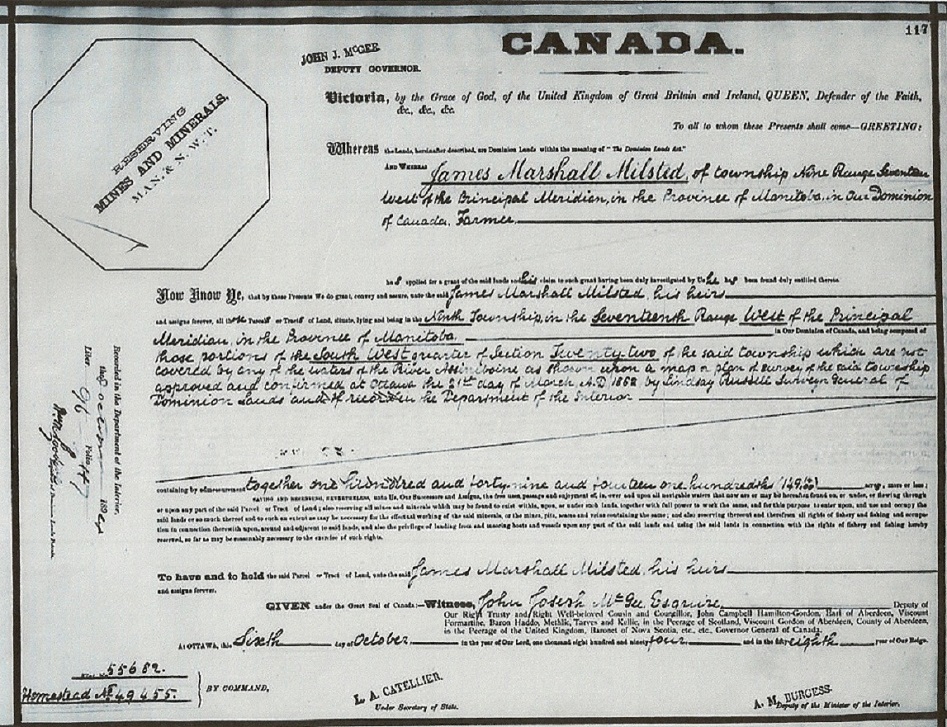 117
CANADA.
JOHN J. McGEE
DEPUTY GOVERNOR.
RESERVING
MINES AND MINERALS,
MAN. & N. W. T.
Victoria, by the Grace of God, of the United Kingdom of Great Britain and Ireland, QUEEN, Defender of the Faith,
&c., &c., &c.
To all to whom these Presents shall come—GREETING:
Whereas the Lands, hereinafter described, are Dominion Lands within the meaning of "The Dominion Lands Act."
AND WHEREAS James Marshall Milsted, of township Nine Range Seventeen
West of the Principal Meridian, in the Province of Manitoba, in Our Dominion
of Canada, Farmer
has applied for a grant of the said lands and his claim to such grant having been duly investigated by Us he has been found duly entitled thereto.
Now Know Ye, that by these Presents We do grant, convey and assure, unto the said James Marshall Milsted, his heirs
and assigns forever, all that Parcel or Tract of Land, situate, lying and being in the Ninth Township, in the Seventeenth Range West of the Principal
Meridian, in the Province of Manitoba, in Our Dominion of Canada, and being composed of
those portions of the South West quarter of Section Twenty two of the said township which are not
covered by any of the waters of the River Assiniboine as shown upon a map or plan of survey of the said township
approved and confirmed at Ottawa the 21st day of March, A.D. 1882 by Lindsay Russell Surveyor General of
Dominion Lands and of record in the Department of the Interior
containing by admeasurement together one hundred and forty nine and fourteen one hundredths acres, more or less;
SAVING AND RESERVING, NEVERTHELESS, unto Us, Our Successors and Assigns, the free uses, passage and enjoyment of, in, over and upon all navigable waters that now are or may be hereafter found on, or under, or flowing through
or upon any part of the said Parcel or Tract of Land; also reserving all mines and minerals which may be found to exist within, upon, or under such lands, together with full power to work the same, and for this purpose to enter upon, and use and occupy the
said lands or so much thereof and to such an extent as may be necessary for the effectual working of the said minerals, or the mines, pits, seams and veins containing the same; and also reserving thereout and therefrom all rights of fishery and fishing and occupa-
tion in connection therewith upon, around and adjacent to said lands, and also the privilege of landing from and mooring boats and vessels upon any part of the said lands and using the said lands in connection with the rights of fishery and fishing hereby
reserved, so far as may be reasonably necessary to the exercise of such rights.
To have and to hold the said Parcel or Tract of Land, unto the said James Marshall Milsted, his heirs
and assigns forever.
GIVEN under the Great Seal of Canada:—Witness, John Joseph McGee, Esquire, Deputy of
Our Right Trusty and Right Well-beloved Cousin and Councillor, John Campbell Hamilton-Gordon, Earl of Aberdeen, Viscount
Formartine, Baron Haddo, Methlic, Tarves and Kellie, in the Peerage of Scotland, Viscount Gordon of Aberdeen, County of Aberdeen,
in the Peerage of the United Kingdom, Baronet of Nova Scotia, etc., etc., Governor General of Canada.
At OTTAWA, this Sixth day October in the year of Our Lord, one thousand eight hundred and ninety four and in the fifty eighth year of Our Reign.
55682.
Homestead No 49455.
BY COMMAND,
L. A. CATELLIER.
Under Secretary of State.
A. M. BURGESS.
Deputy of the Minister of the Interior.
Recorded in the Department of the Interior,
the October 1894
Liber 96 Folio 117